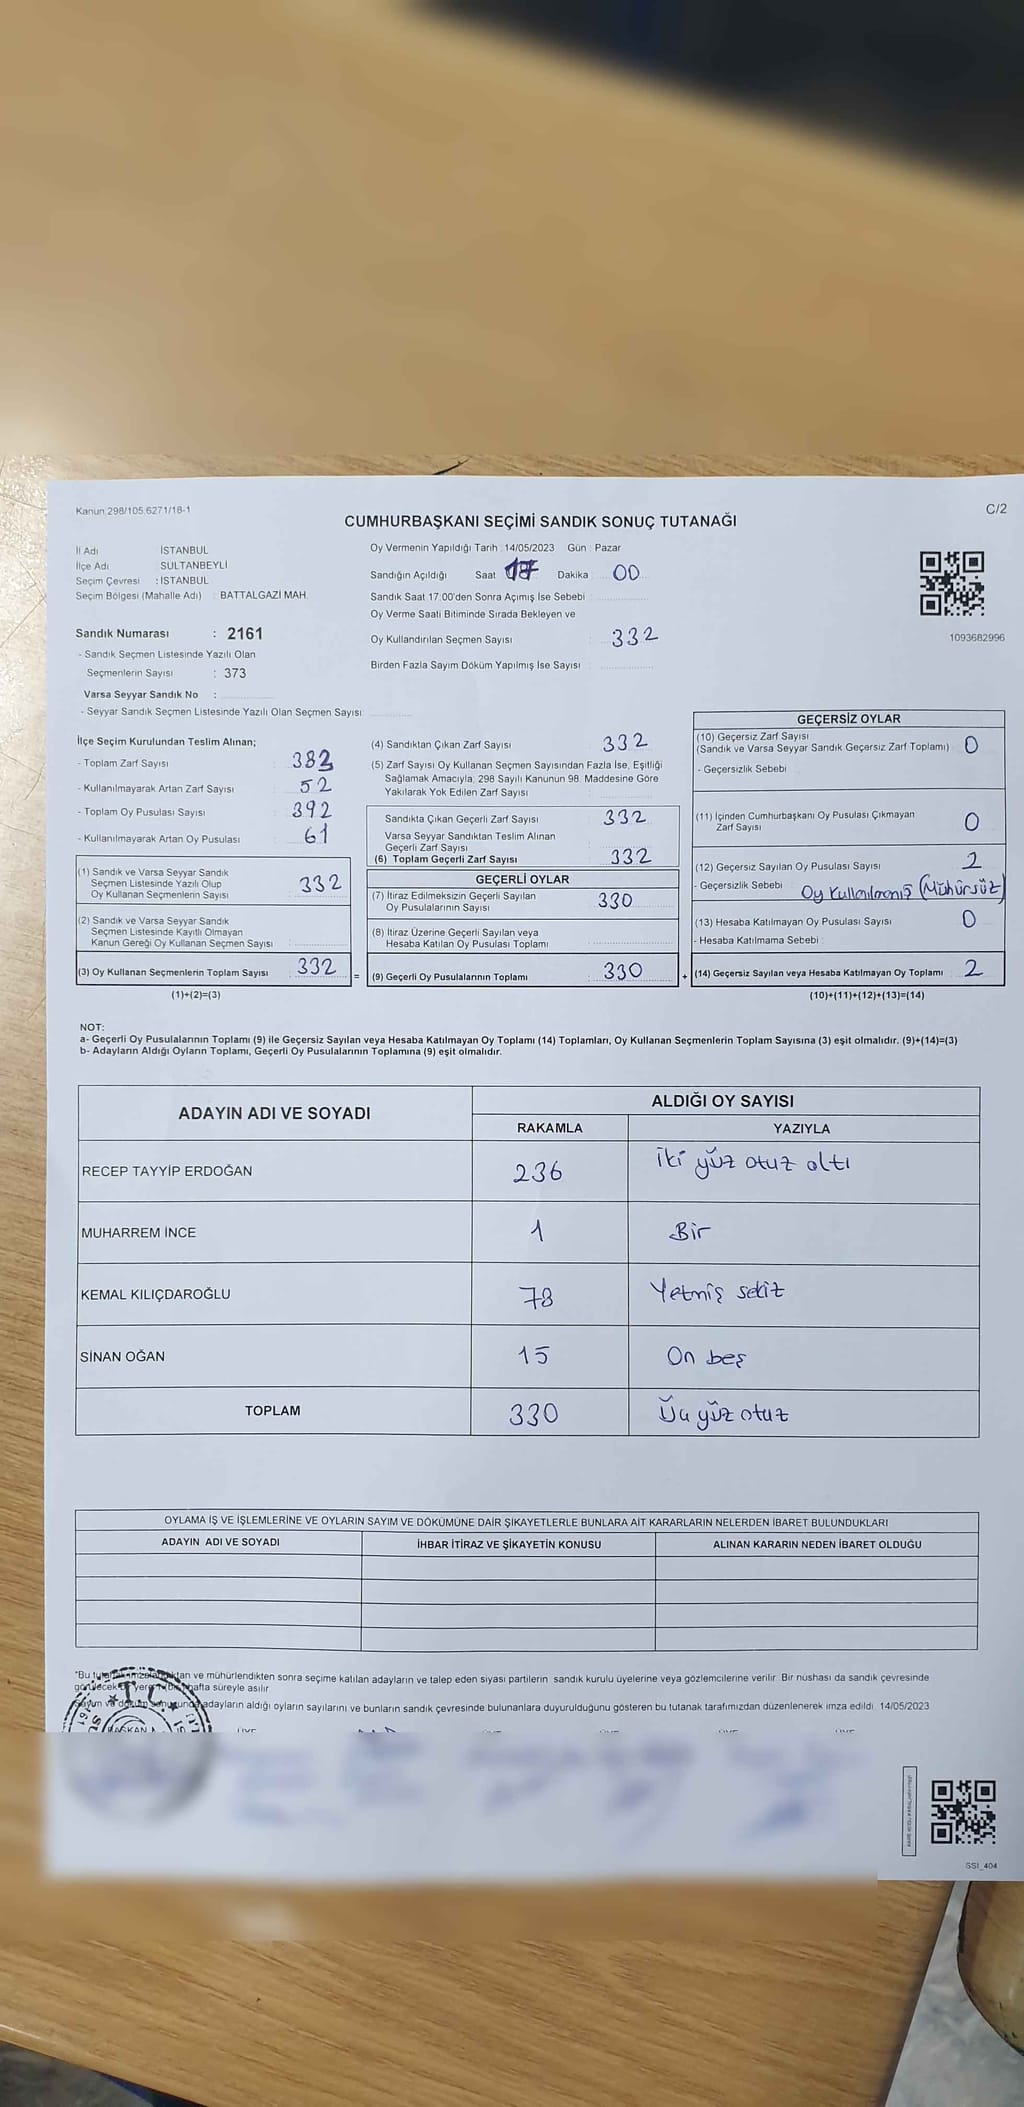 Kanun 298/105.6271/18-1
C/2
CUMHURBAŞKANI SEÇİMİ SANDIK SONUÇ TUTANAĞI
İl Adı İSTANBUL
İlçe Adı SULTANBEYLİ
Seçim Çevresi : İSTANBUL
Seçim Bölgesi (Mahalle Adı) : BATTALGAZİ MAH.
Sandık Numarası : 2161
- Sandık Seçmen Listesinde Yazılı Olan
Seçmenlerin Sayısı : 373
Varsa Seyyar Sandık No :
- Seyyar Sandık Seçmen Listesinde Yazılı Olan Seçmen Sayısı
Oy Vermenin Yapıldığı Tarih : 14/05/2023 Gün : Pazar
Sandığın Açıldığı Saat 17 Dakika 00
Sandık Saat 17:00'den Sonra Açımış İse Sebebi :
Oy Verme Saati Bitiminde Sırada Bekleyen ve
Oy Kullandırılan Seçmen Sayısı : 332
Birden Fazla Sayım Döküm Yapılmış İse Sayısı :
1093682996
İlçe Seçim Kurulundan Teslim Alınan;
- Toplam Zarf Sayısı : 383
- Kullanılmayarak Artan Zarf Sayısı : 52
- Toplam Oy Pusulası Sayısı : 392
- Kullanılmayarak Artan Oy Pusulası : 61
(1) Sandık ve Varsa Seyyar Sandık
Seçmen Listesinde Yazılı Olup
Oy Kullanan Seçmenlerin Sayısı : 332
(2) Sandık ve Varsa Seyyar Sandık
Seçmen Listesinde Kayıtlı Olmayan
Kanun Gereği Oy Kullanan Seçmen Sayısı :
(3) Oy Kullanan Seçmenlerin Toplam Sayısı : 332
(1)+(2)=(3)
=
(4) Sandıktan Çıkan Zarf Sayısı : 332
(5) Zarf Sayısı Oy Kullanan Seçmen Sayısından Fazla İse, Eşitliği
Sağlamak Amacıyla; 298 Sayılı Kanunun 98. Maddesine Göre
Yakılarak Yok Edilen Zarf Sayısı :
Sandıkta Çıkan Geçerli Zarf Sayısı : 332
Varsa Seyyar Sandıktan Teslim Alınan
Geçerli Zarf Sayısı :
(6) Toplam Geçerli Zarf Sayısı : 332
GEÇERLİ OYLAR
(7) İtiraz Edilmeksizin Geçerli Sayılan
Oy Pusulalarının Sayısı : 330
(8) İtiraz Üzerine Geçerli Sayılan veya
Hesaba Katılan Oy Pusulası Toplamı :
(9) Geçerli Oy Pusulalarının Toplamı : 330
+
GEÇERSİZ OYLAR
(10) Geçersiz Zarf Sayısı
(Sandık ve Varsa Seyyar Sandık Geçersiz Zarf Toplamı) : 0
- Geçersizlik Sebebi :
(11) İçinden Cumhurbaşkanı Oy Pusulası Çıkmayan
Zarf Sayısı : 0
(12) Geçersiz Sayılan Oy Pusulası Sayısı : 2
- Geçersizlik Sebebi : Oy Kullanılmamış (Mühürsüz)
(13) Hesaba Katılmayan Oy Pusulası Sayısı : 0
- Hesaba Katılmama Sebebi :
(14) Geçersiz Sayılan veya Hesaba Katılmayan Oy Toplamı : 2
(10)+(11)+(12)+(13)=(14)
NOT:
a- Geçerli Oy Pusulalarının Toplamı (9) ile Geçersiz Sayılan veya Hesaba Katılmayan Oy Toplamı (14) Toplamları, Oy Kullanan Seçmenlerin Toplam Sayısına (3) eşit olmalıdır. (9)+(14)=(3)
b- Adayların Aldığı Oyların Toplamı, Geçerli Oy Pusulalarının Toplamına (9) eşit olmalıdır.
ADAYIN ADI VE SOYADI
ALDIĞI OY SAYISI
RAKAMLA YAZIYLA
RECEP TAYYİP ERDOĞAN 236 iki yüz otuz altı
MUHARREM İNCE 1 Bir
KEMAL KILIÇDAROĞLU 78 Yetmiş sekiz
SİNAN OĞAN 15 On beş
TOPLAM 330 Üç yüz otuz
OYLAMA İŞ VE İŞLEMLERİNE VE OYLARIN SAYIM VE DÖKÜMÜNE DAİR ŞİKAYETLERLE BUNLARA AİT KARARLARIN NELERDEN İBARET BULUNDUKLARI
ADAYIN ADI VE SOYADI İHBAR İTİRAZ VE ŞİKAYETİN KONUSU ALINAN KARARIN NEDEN İBARET OLDUĞU
*Bu tutanak imzalandıktan ve mühürlendikten sonra seçime katılan adayların ve talep eden siyasi partilerin sandık kurulu üyelerine veya gözlemcilerine verilir. Bir nüshası da sandık çevresinde
görülecek bir yere 1 bir hafta süreyle asılır.
Sayım ve döküm sonucunda adayların aldığı oyların sayılarını ve bunların sandık çevresinde bulunanlara duyurulduğunu gösteren bu tutanak tarafımızdan düzenlenerek imza edildi. 14/05/2023
T.C.
BAŞKAN
SSI_404